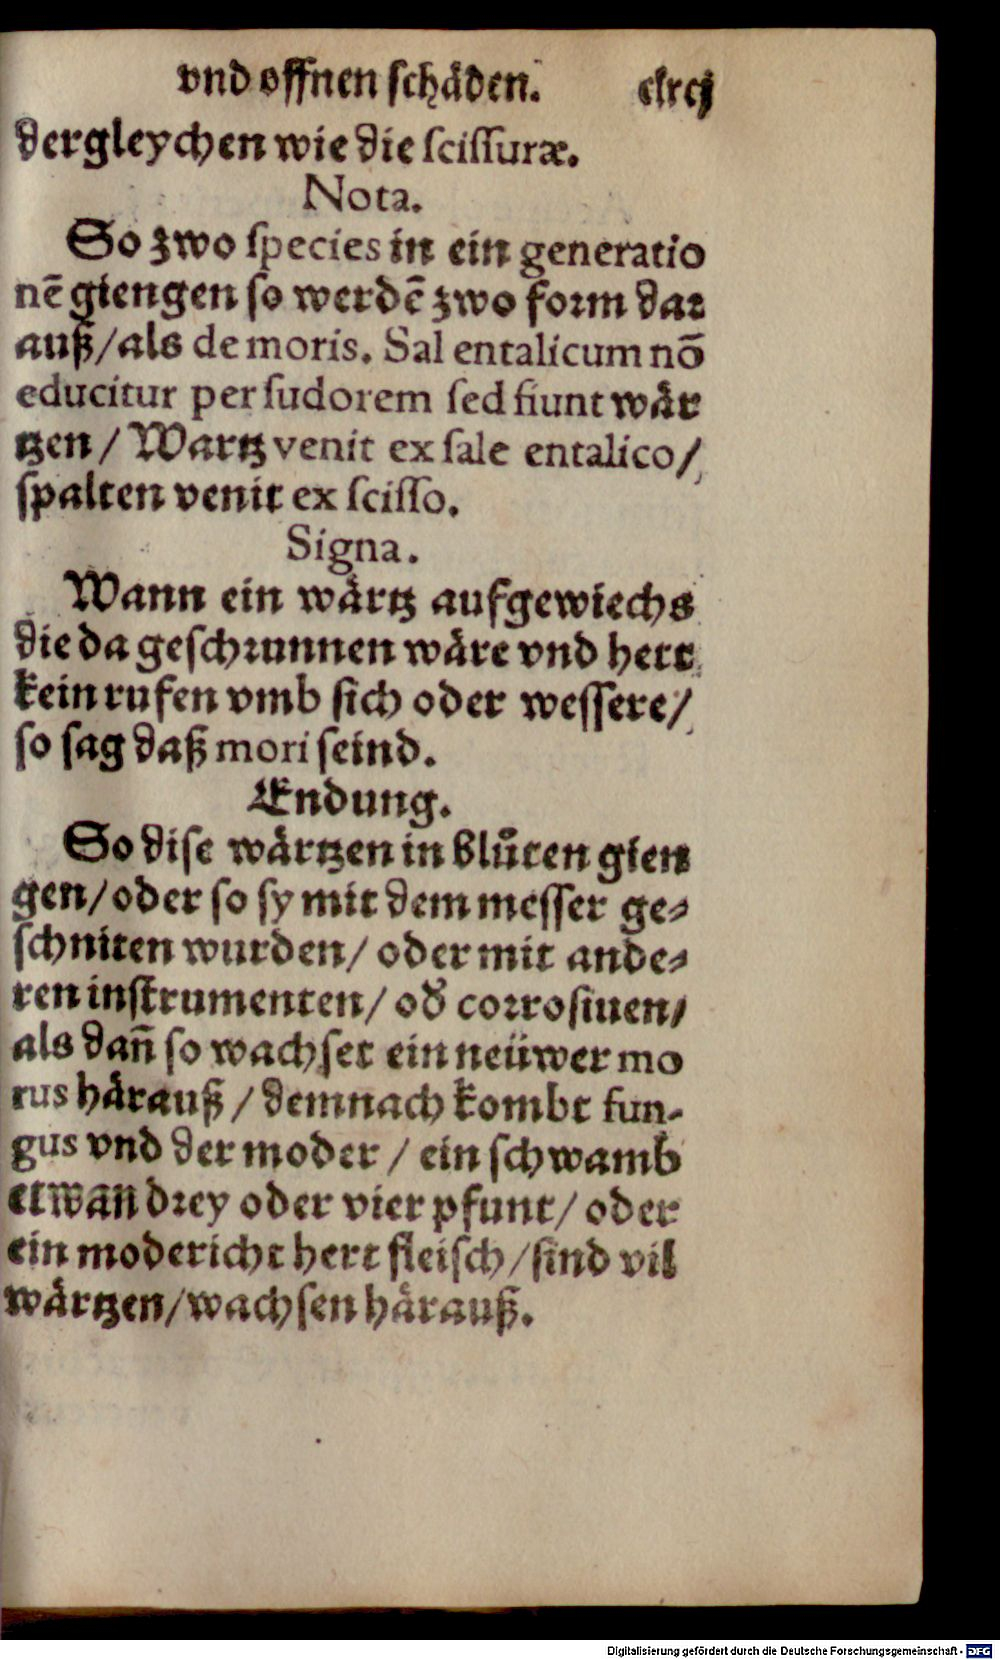 vnd offnen schäden. clxcj
dergleychen wie die scissuræ.
Nota.
So zwo species in ein generatio
nē giengen so werdē zwo form dar
auß/als de moris. Sal entalicum nō
educitur per sudorem sed fiunt wär
tzen / Wartz venit ex sale entalico/
spalten venit ex scisso.
Signa.
Wann ein wärtz aufgewiechs
die da geschrunnen wäre vnd hett
kein rufen vmb sich oder wessere/
so sag daß mori seind.
Endung.
So dise wärtzen in blůten gien
gen/oder so sy mit dem messer ge-
schniten wurden/ oder mit ande-
ren instrumenten/ od corrosiuen/
als dañ so wachset ein neüwer mo
rus härauß / demnach kombt fun-
gus vnd der moder / ein schwamb
etwañ drey oder vier pfunt/ oder
ein modericht hert fleisch/sind vil
wärtzen/wachsen härauß.
Digitalisierung gefördert durch die Deutsche Forschungsgemeinschaft - DFG